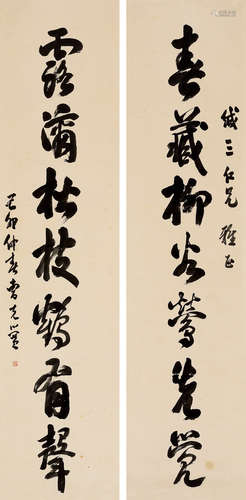 春藏柳谷鶯先覺
緘三仁兄 雅正
露滴松枝鶴有聲
己卯仲春曹